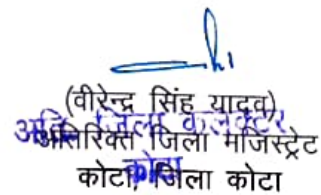 (वीरेन्द्र सिंह यादव)
अति० जिला कलेक्टर
अतिरिक्त जिला मजिस्ट्रेट
कोटा, जिला कोटा
कोटा